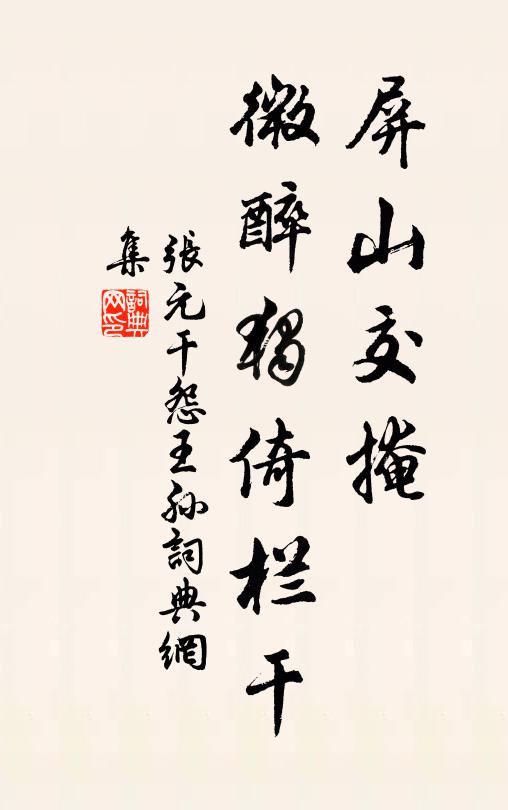 屏山交掩
微醉獨倚栏干
張元干怨王孫詞典網
集
詞典网印